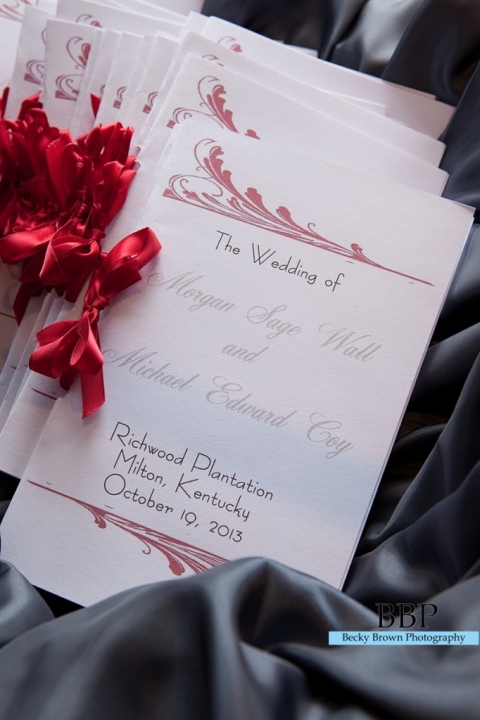 The Wedding of
Morgan Sage Wall
and
Michael Edward Coy
Richwood Plantation
Milton, Kentucky
October 19, 2013
BBP
Becky Brown Photography